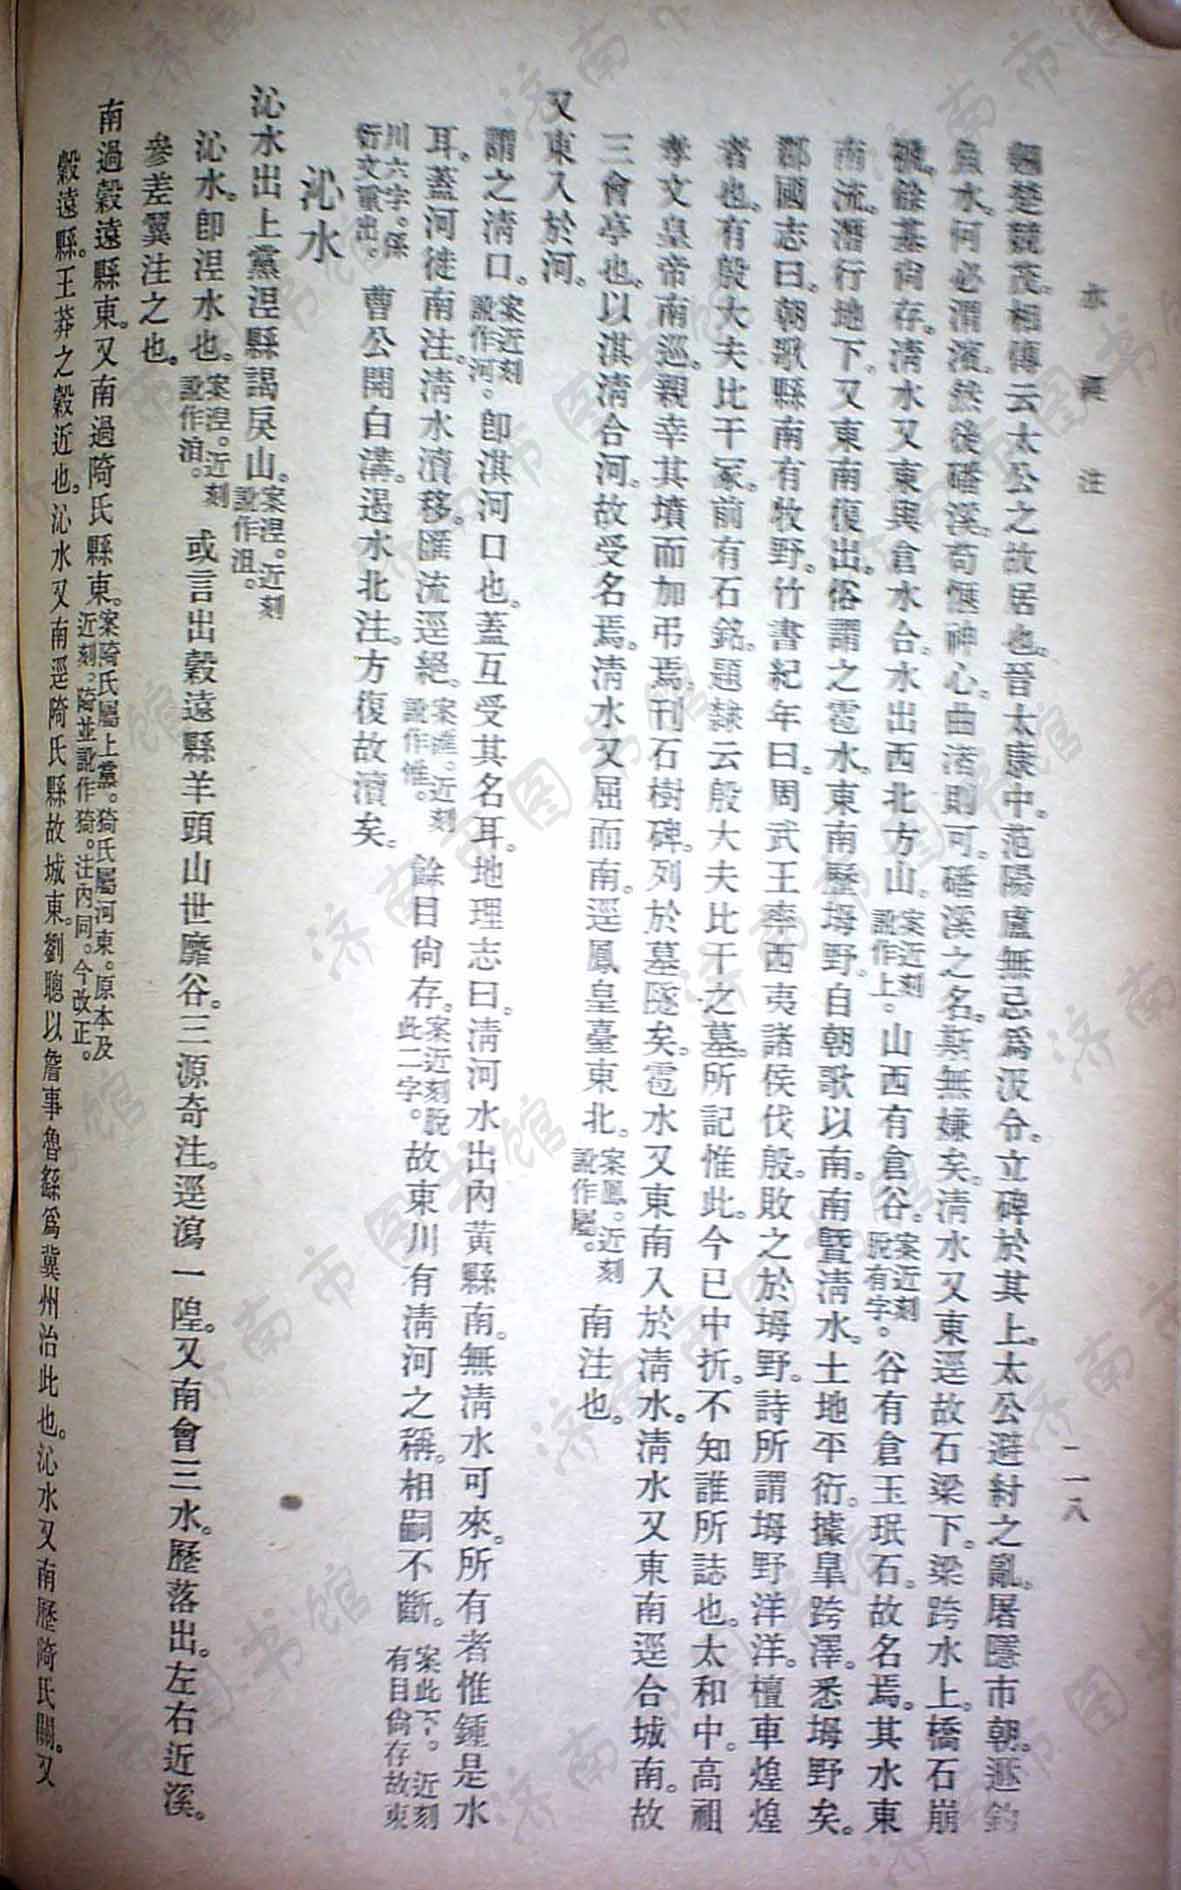 水經注
二一八
翹楚競茂。相傳云太公之故居也。晉太康中。范陽盧無忌爲汲令。立碑於其上。太公避紂之亂。屠隱市朝。遯釣
魚水。何必渭濱。然後磻溪。苟愜神心。曲渚則可。磻溪之名。斯無嫌矣。清水又東逕故石梁下。梁跨水上。橋石崩
褫。餘基尙存。清水又東與倉水合。水出西北方山。案近刻訛作上。山西有倉谷。案近刻脫有字。谷有倉玉珉石。故名焉。其水東
南流。潛行地下。又東南復出。俗謂之雹水。東南歷坶野。自朝歌以南。南曁淸水。土地平衍。據皐跨澤。悉坶野矣。
郡國志曰。朝歌縣南有牧野。竹書紀年曰。周武王率西夷諸侯伐殷。敗之於坶野。詩所謂坶野洋洋。檀車煌煌
者也。有殷大夫比干冢。前有石銘。題隸云殷大夫比干之墓。所記惟此。今已中折。不知誰所誌也。太和中。高祖
孝文皇帝南巡。親幸其墳而加弔焉。刊石樹碑。列於墓隧矣。雹水又東南入於淸水。淸水又東南逕合城南。故
三會亭也。以淇淸合河。故受名焉。淸水又屈而南逕鳳皇臺東北。案鳳。近刻訛作屬。南注也。
又東入於河。
謂之淸口。案近刻訛作河。卽淇河口也。蓋互受其名耳。地理志曰。淸河水出內黃縣南。無淸水可來。所有者惟鍾是水
耳。蓋河徙南注。淸水瀆移。匯流逕絕。案匯。近刻訛作惟。餘目尙存。案近刻脫此二字。故東川有淸河之稱。相嗣不斷。案此下。近刻有目尙存故東
川六字。係衍文重出。曹公開白溝。遏水北注。方復故瀆矣。
沁水
沁水出上黨涅縣謁戾山。案涅。近刻訛作沮。
沁水。卽涅水也。案涅。近刻訛作洎。或言出穀遠縣羊頭山世靡谷。三源奇注。逕瀉一隍。又南會三水。歷落出。左右近溪。
參差翼注之也。
南過穀遠縣東。又南過陭氏縣東。案陭氏屬上黨。猗氏屬河東。原本及近刻。陭並訛作猗。注內同。今改正。
穀遠縣。王莽之穀近也。沁水又南逕陭氏縣故城東。劉聰以詹事魯繇爲冀州治此也。沁水又南歷陭氏關。又